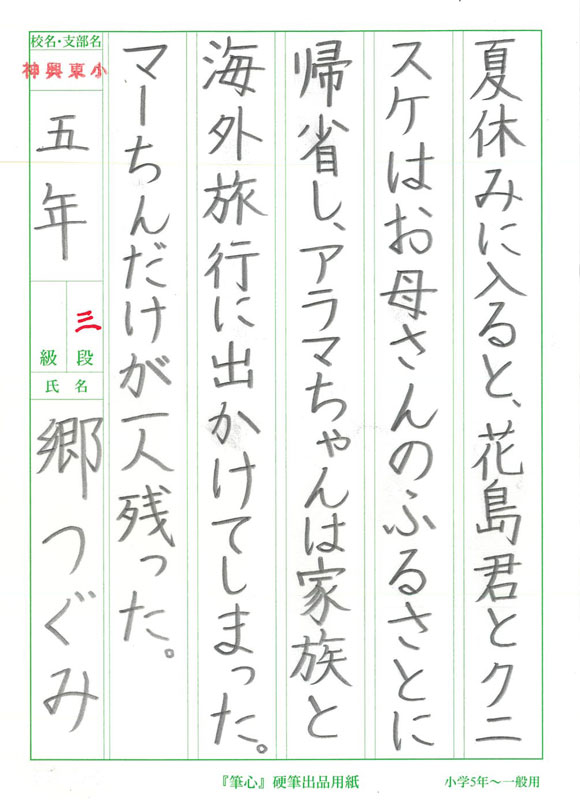 夏休みに入ると、花島君とクニ
スケはお母さんのふるさとに
帰省し、アラマちゃんは家族と
海外旅行に出かけてしまった。
マーちんだけが一人残った。
校名・支部名
神興東小
五年
三段
級
氏名
郷つぐみ
『筆心』硬筆出品用紙
小学5年〜一般用